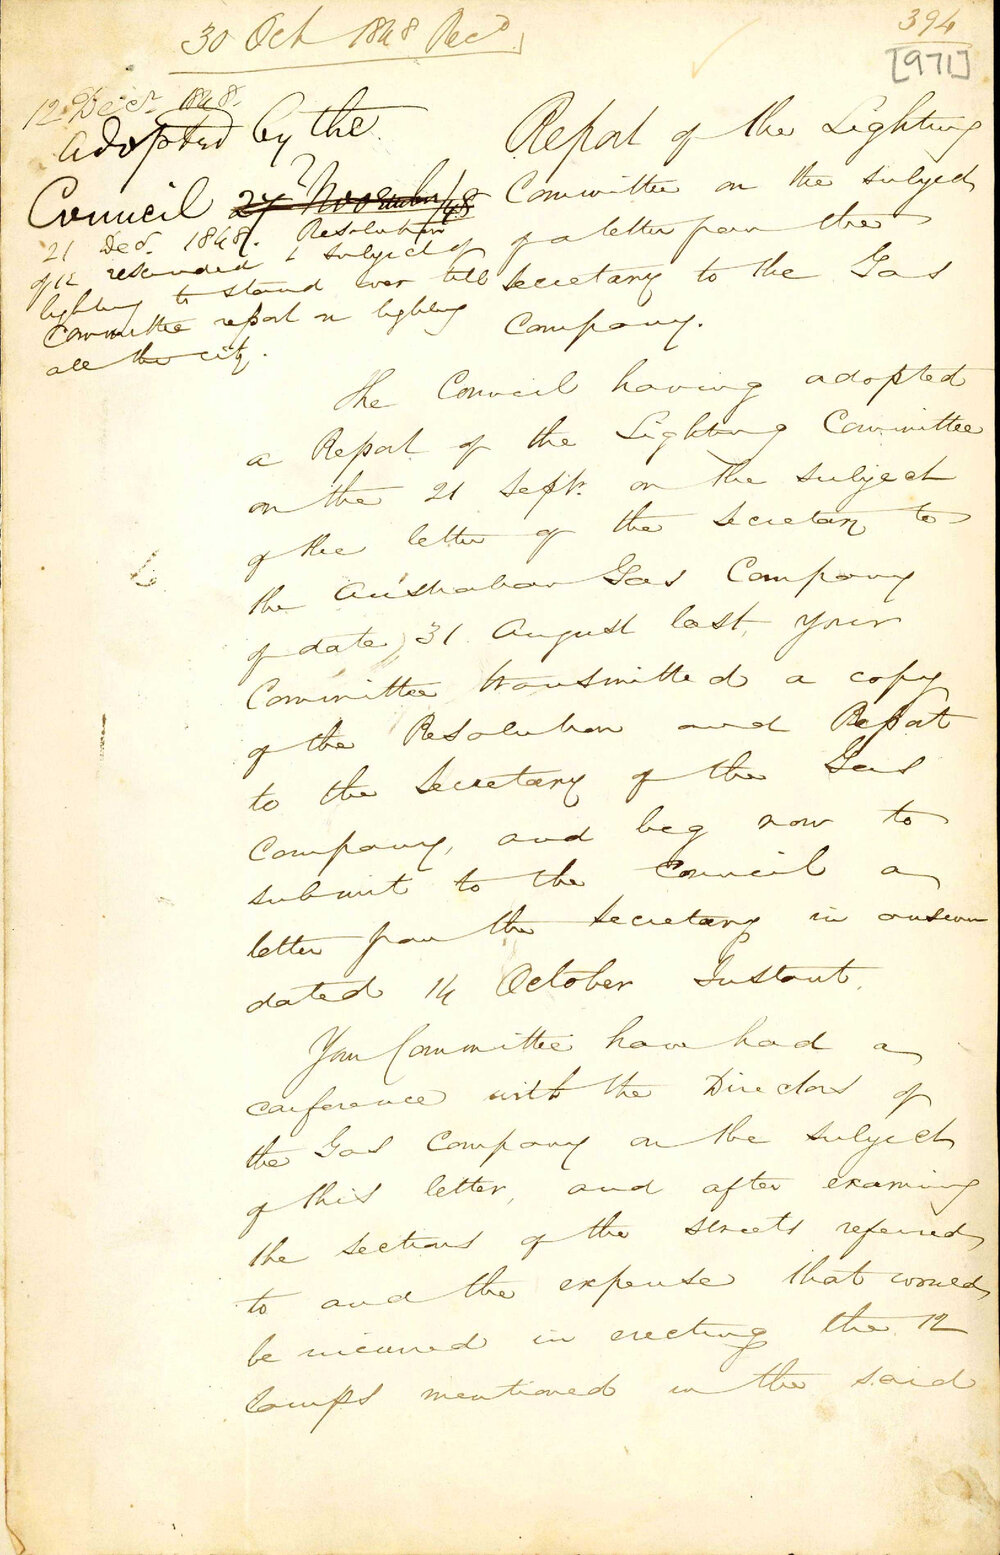 30 Oct 1848 Recd.
394
[971]
12 Decr. 1848.
Adopted by the
Council 27 November/48
21 Decr. 1848. Resolution
of 12 rescinded & subject of
lighting to stand over till
Committee report on lighting
all the city.
Report of the Lighting
Committee on the subject
of a letter from the
Secretary to the Gas
Company.
The Council having adopted
a Report of the Lighting Committee
on the 21 Septr. on the subject
of the letter of the Secretary to
the Australian Gas Company
of date 31 August last, your
Committee transmitted a copy
of the Resolution and Report
to the Secretary of the Gas
Company, and beg now to
submit to the Council a
letter from the Secretary in answer
dated 14 October Instant.
Your Committee have had a
conference with the Directors of
the Gas Company on the subject
of this letter, and after examing
the sections of the streets referred
to and the expense that would
be incurred in erecting the 12
Lamps mentioned in the said